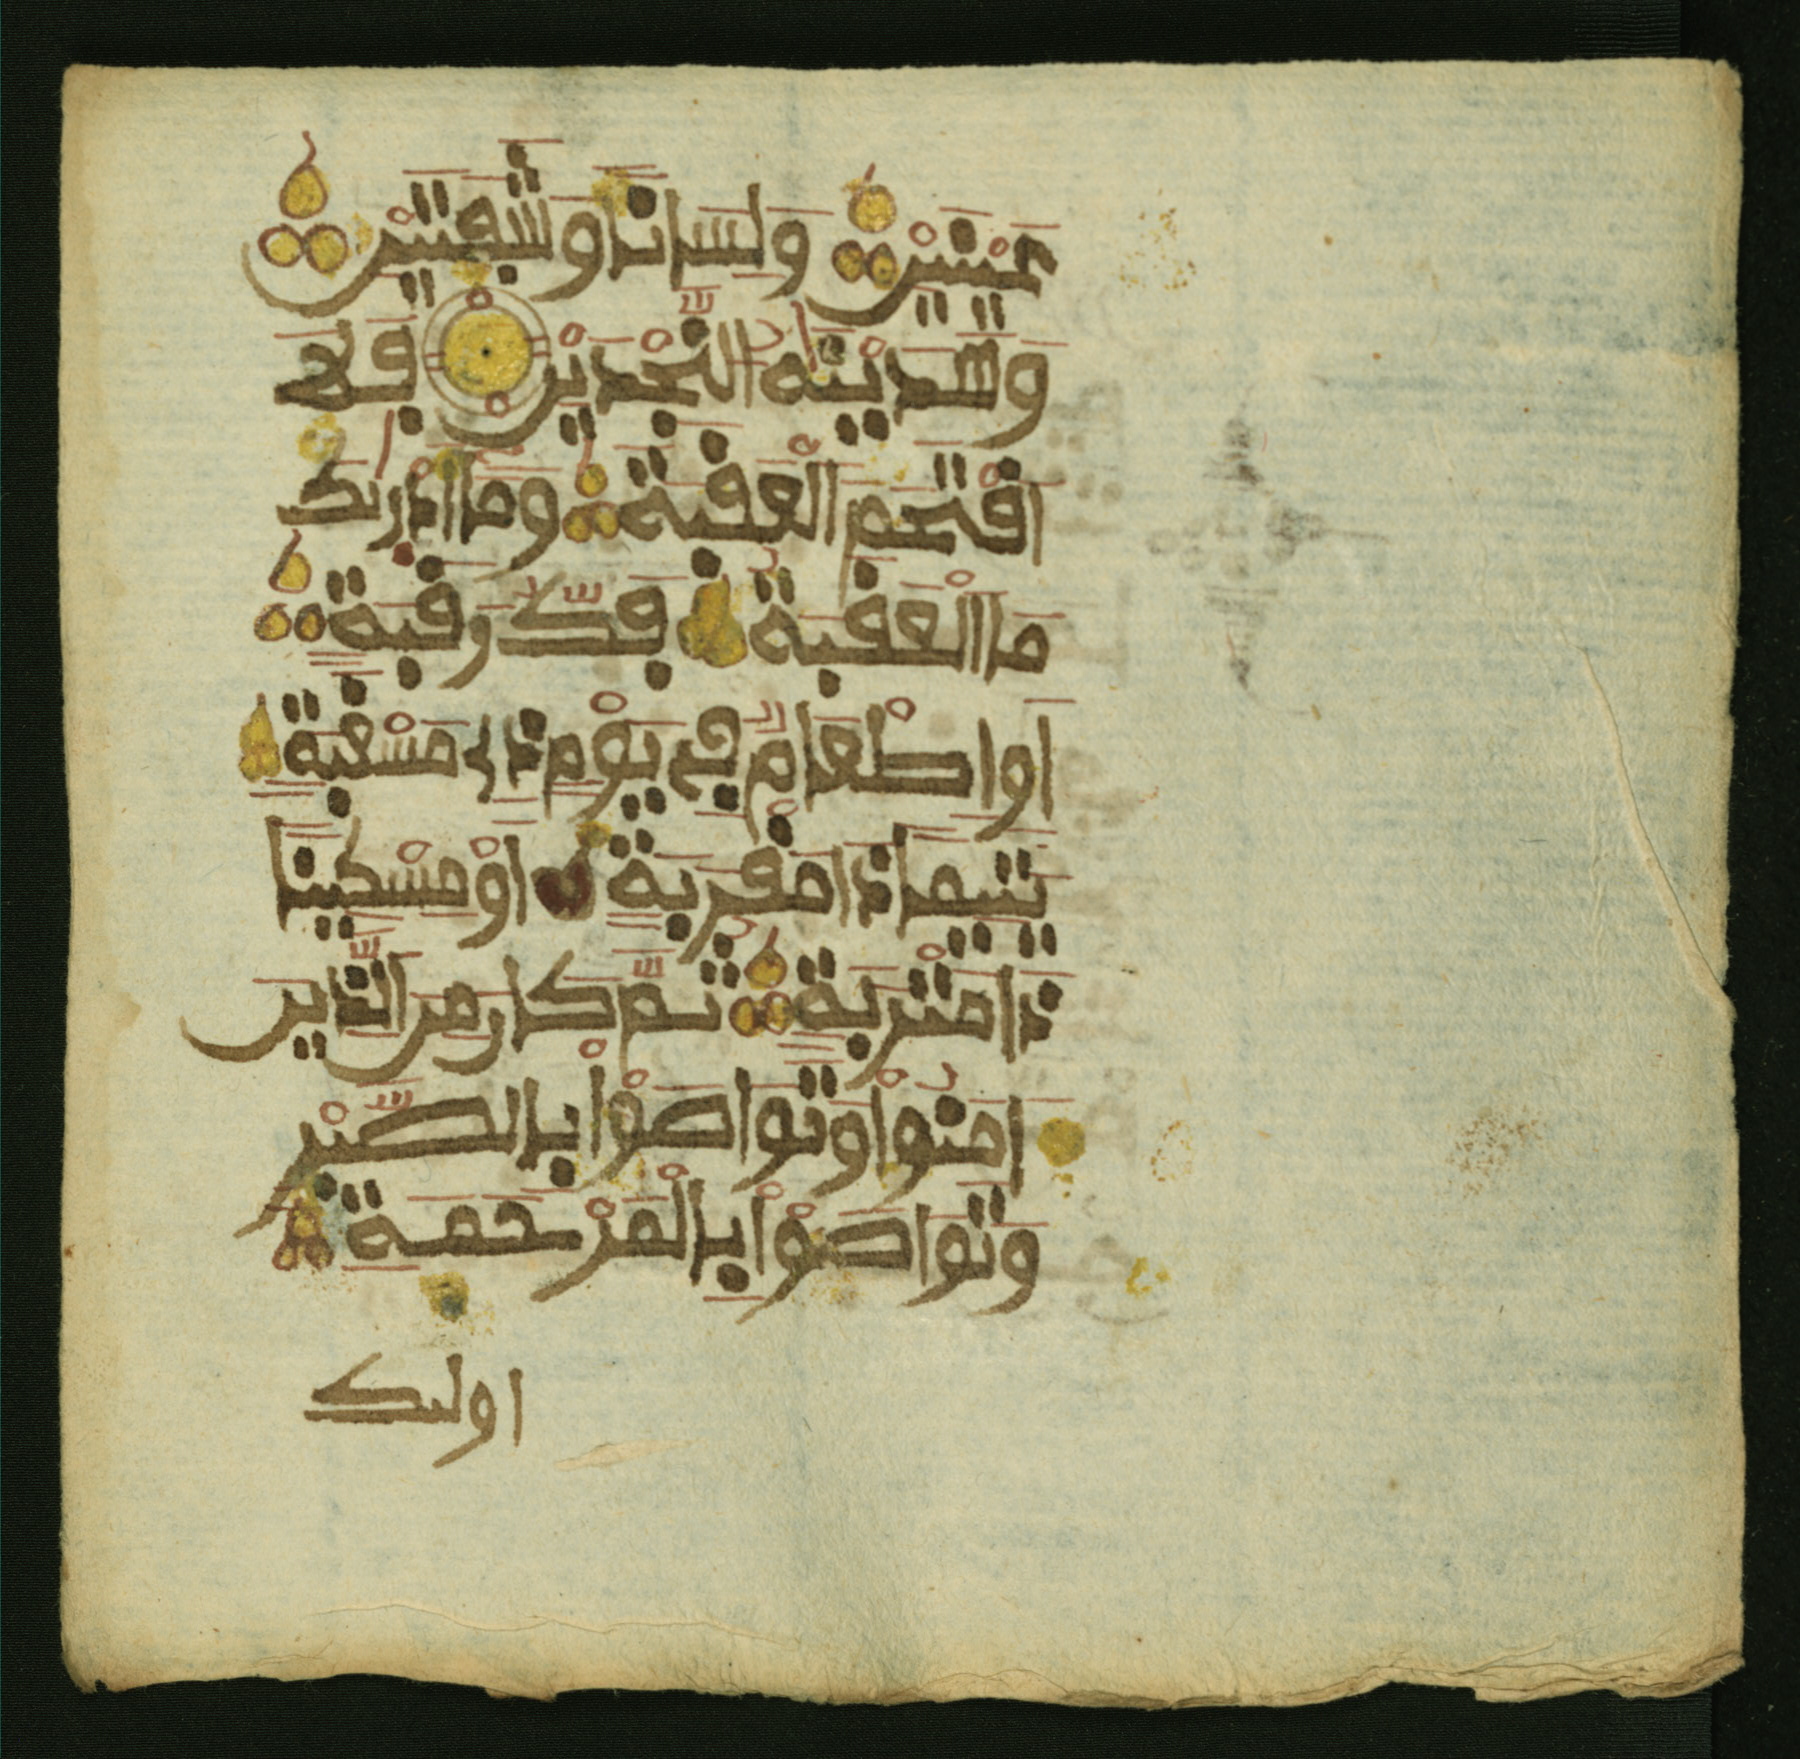 عينين ولسانا وشفتين
وهدينه النجدين فلا
اقتحم العقبة وما ادريك
ما العقبة فك رقبة
او اطعام في يوم ذي مسغبة
يتيما ذا مقربة او مسكينا
ذا متربة ثم كان من الذين
امنوا وتواصوا بالصبر
وتواصوا بالمرحمة
اولىك